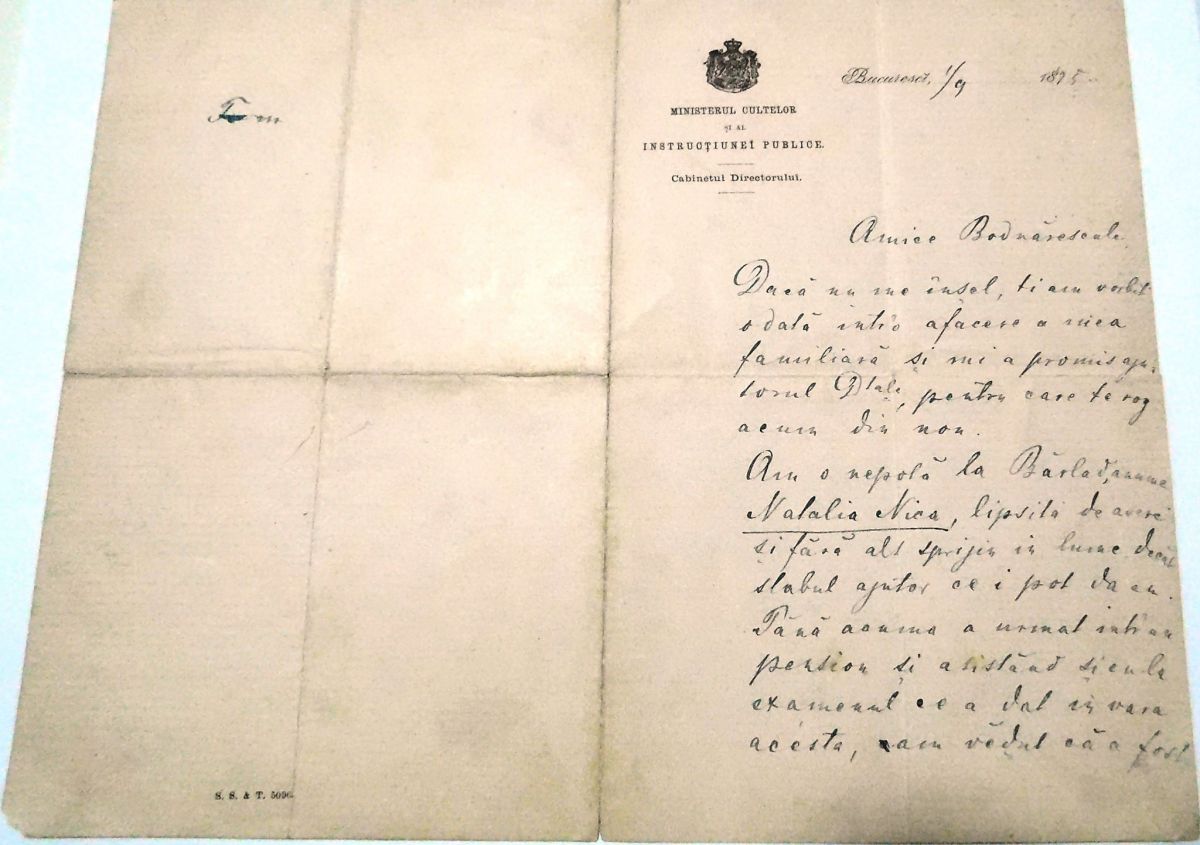 m
S. S. & T. 5096
MINISTERUL CULTELOR
ȘI AL
INSTRUCȚIUNEI PUBLICE.
Cabinetul Directorului.
Bucuresci, 1/9 1895
Amice Bodnărescule,
Dacă nu me insel, ti am vorbit
o dată intr'o afacere a mea
familiară și mi a promis aju-
torul Dtale, pentru care te rog
acum din nou.
Am o nepotă la Bârlad, anume
Natalia Nica, lipsită de avere
și fără alt sprijin in lume decât
slabul ajutor ce i pot da eu.
Până acuma a urmat intr'un
pension și asistând și eu la
examenul ce a dat in vara
acésta, am vĕdut că a fost